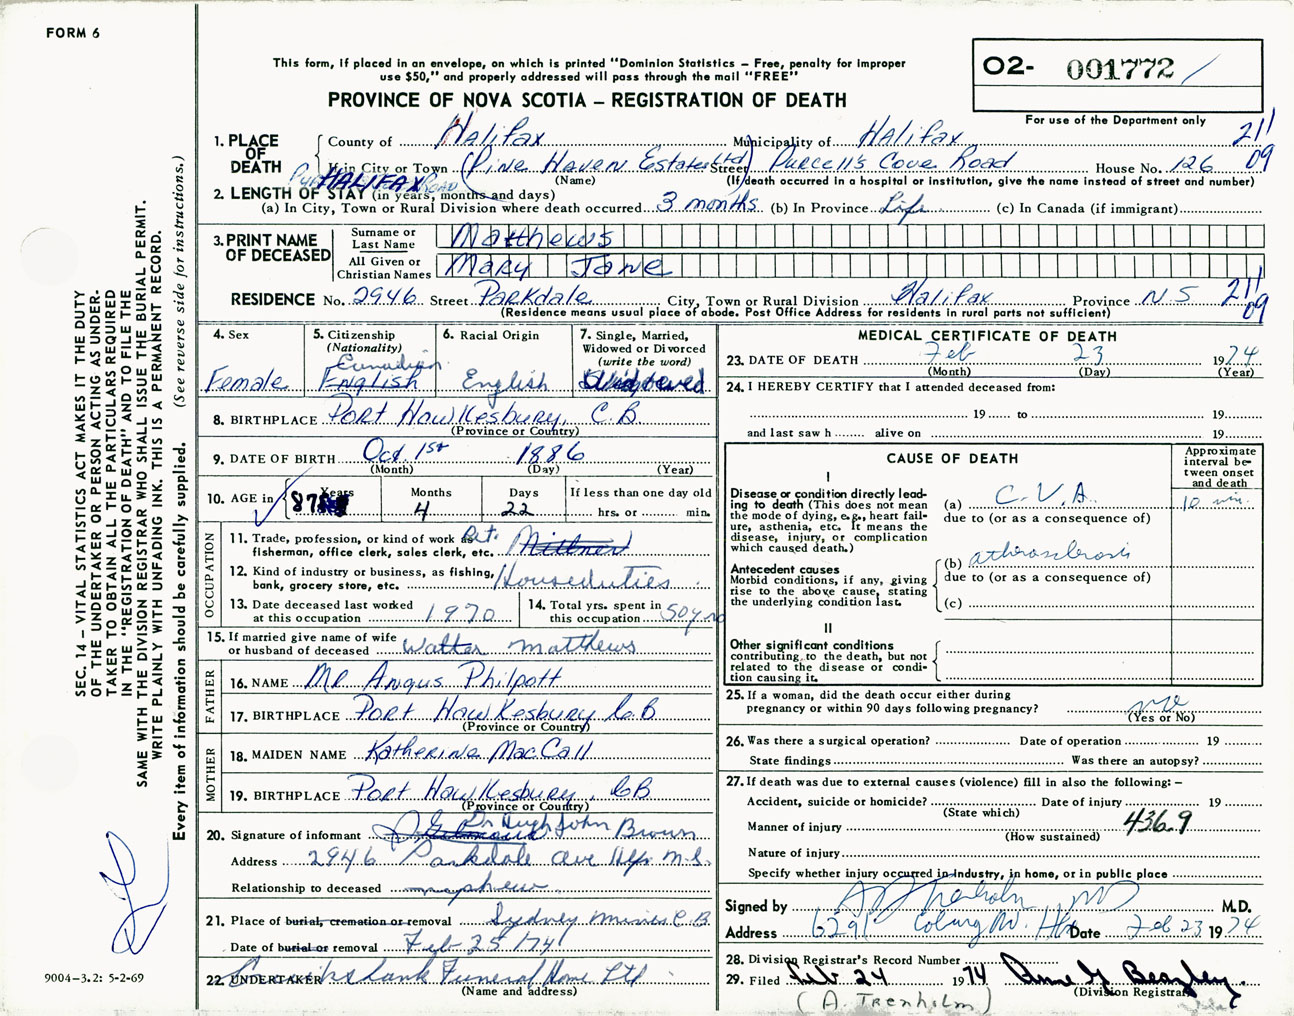 FORM 6
This form, if placed in an envelope, on which is printed "Dominion Statistics – Free, penalty for improper
use $50," and properly addressed will pass through the mail "FREE"
PROVINCE OF NOVA SCOTIA – REGISTRATION OF DEATH
02- 001772 /
For use of the Department only
1. PLACE OF DEATH
County of Halifax Municipality of Halifax 21'
If in City or Town (Pine Haven Estates Ltd) Street Purcell's Cove Road House No. 126 09
HALIFAX (Name) (If death occurred in a hospital or institution, give the name instead of street and number)
2. LENGTH OF STAY (in years, months and days)
(a) In City, Town or Rural Division where death occurred 3 months (b) In Province Life (c) In Canada (if immigrant)
3. PRINT NAME OF DECEASED
Surname or Last Name Matthews
All Given or Christian Names Mary Jane
RESIDENCE No. 2946 Street Parkdale City, Town or Rural Division Halifax Province N.S 21'
(Residence means usual place of abode. Post Office Address for residents in rural parts not sufficient) 09
4. Sex
Female
5. Citizenship
(Nationality)
Canadian
English
6. Racial Origin
English
7. Single, Married,
Widowed or Divorced
(write the word)
Widowed
8. BIRTHPLACE Port Hawkesbury, C.B
(Province or Country)
9. DATE OF BIRTH Oct. 1st 1886
(Month) (Day) (Year)
10. AGE in 87 Years
Months 4
Days 22
If less than one day old
hrs. or min.
OCCUPATION
11. Trade, profession, or kind of work as Ret.
fisherman, office clerk, sales clerk, etc.
12. Kind of industry or business, as fishing,
bank, grocery store, etc. Houseduties
13. Date deceased last worked
at this occupation 1970
14. Total yrs. spent in
this occupation 50 yrs
15. If married give name of wife
or husband of deceased Walter Matthews
FATHER
16. NAME Mr Angus Philpott
17. BIRTHPLACE Port Hawkesbury C.B
(Province or Country)
MOTHER
18. MAIDEN NAME Katherine MacCall
19. BIRTHPLACE Port Hawkesbury, CB
(Province or Country)
20. Signature of informant Dr Hugh John Brown
Address 2946 Parkdale Ave Hfx N.S.
Relationship to deceased nephew
21. Place of burial, cremation or removal Sydney Mines C.B
Date of burial or removal Feb 25 /74
22. UNDERTAKER Cruikshank Funeral Home Ltd
(Name and address)
MEDICAL CERTIFICATE OF DEATH
23. DATE OF DEATH Feb 23 1974
(Month) (Day) (Year)
24. I HEREBY CERTIFY that I attended deceased from:
19 to 19
and last saw h alive on 19
CAUSE OF DEATH
Approximate
interval be-
tween onset
and death
I
Disease or condition directly lead-
ing to death (This does not mean
the mode of dying, e.g., heart fail-
ure, asthenia, etc. It means the
disease, injury, or complication
which caused death.)
(a) C.V.A. 10 min.
due to (or as a consequence of)
Antecedent causes
Morbid conditions, if any, giving
rise to the above cause, stating
the underlying condition last.
(b) atherosclerosis
due to (or as a consequence of)
(c)
II
Other significant conditions
contributing to the death, but not
related to the disease or condi-
tion causing it.
25. If a woman, did the death occur either during
pregnancy or within 90 days following pregnancy? no
(Yes or No)
26. Was there a surgical operation? Date of operation 19
State findings Was there an autopsy?
27. If death was due to external causes (violence) fill in also the following: –
Accident, suicide or homicide? Date of injury 19
(State which)
Manner of injury 436.9
(How sustained)
Nature of injury
Specify whether injury occurred in industry, in home, or in public place
Signed by A Trenholm MD M.D.
Address 6291 Coburg Rd. Hfx Date Feb 23 1974
28. Division Registrar's Record Number
29. Filed Feb 24 1974 Anne G Beazley
(Division Registrar)
(A. Trenholm)
SEC. 14 – VITAL STATISTICS ACT MAKES IT THE DUTY
OF THE UNDERTAKER OR PERSON ACTING AS UNDER-
TAKER TO OBTAIN ALL THE PARTICULARS REQUIRED
IN THE "REGISTRATION OF DEATH" AND TO FILE THE
SAME WITH THE DIVISION REGISTRAR WHO SHALL ISSUE THE BURIAL PERMIT.
WRITE PLAINLY WITH UNFADING INK. THIS IS A PERMANENT RECORD.
Every item of information should be carefully supplied. (See reverse side for instructions.)
9004-3.2: 5-2-69